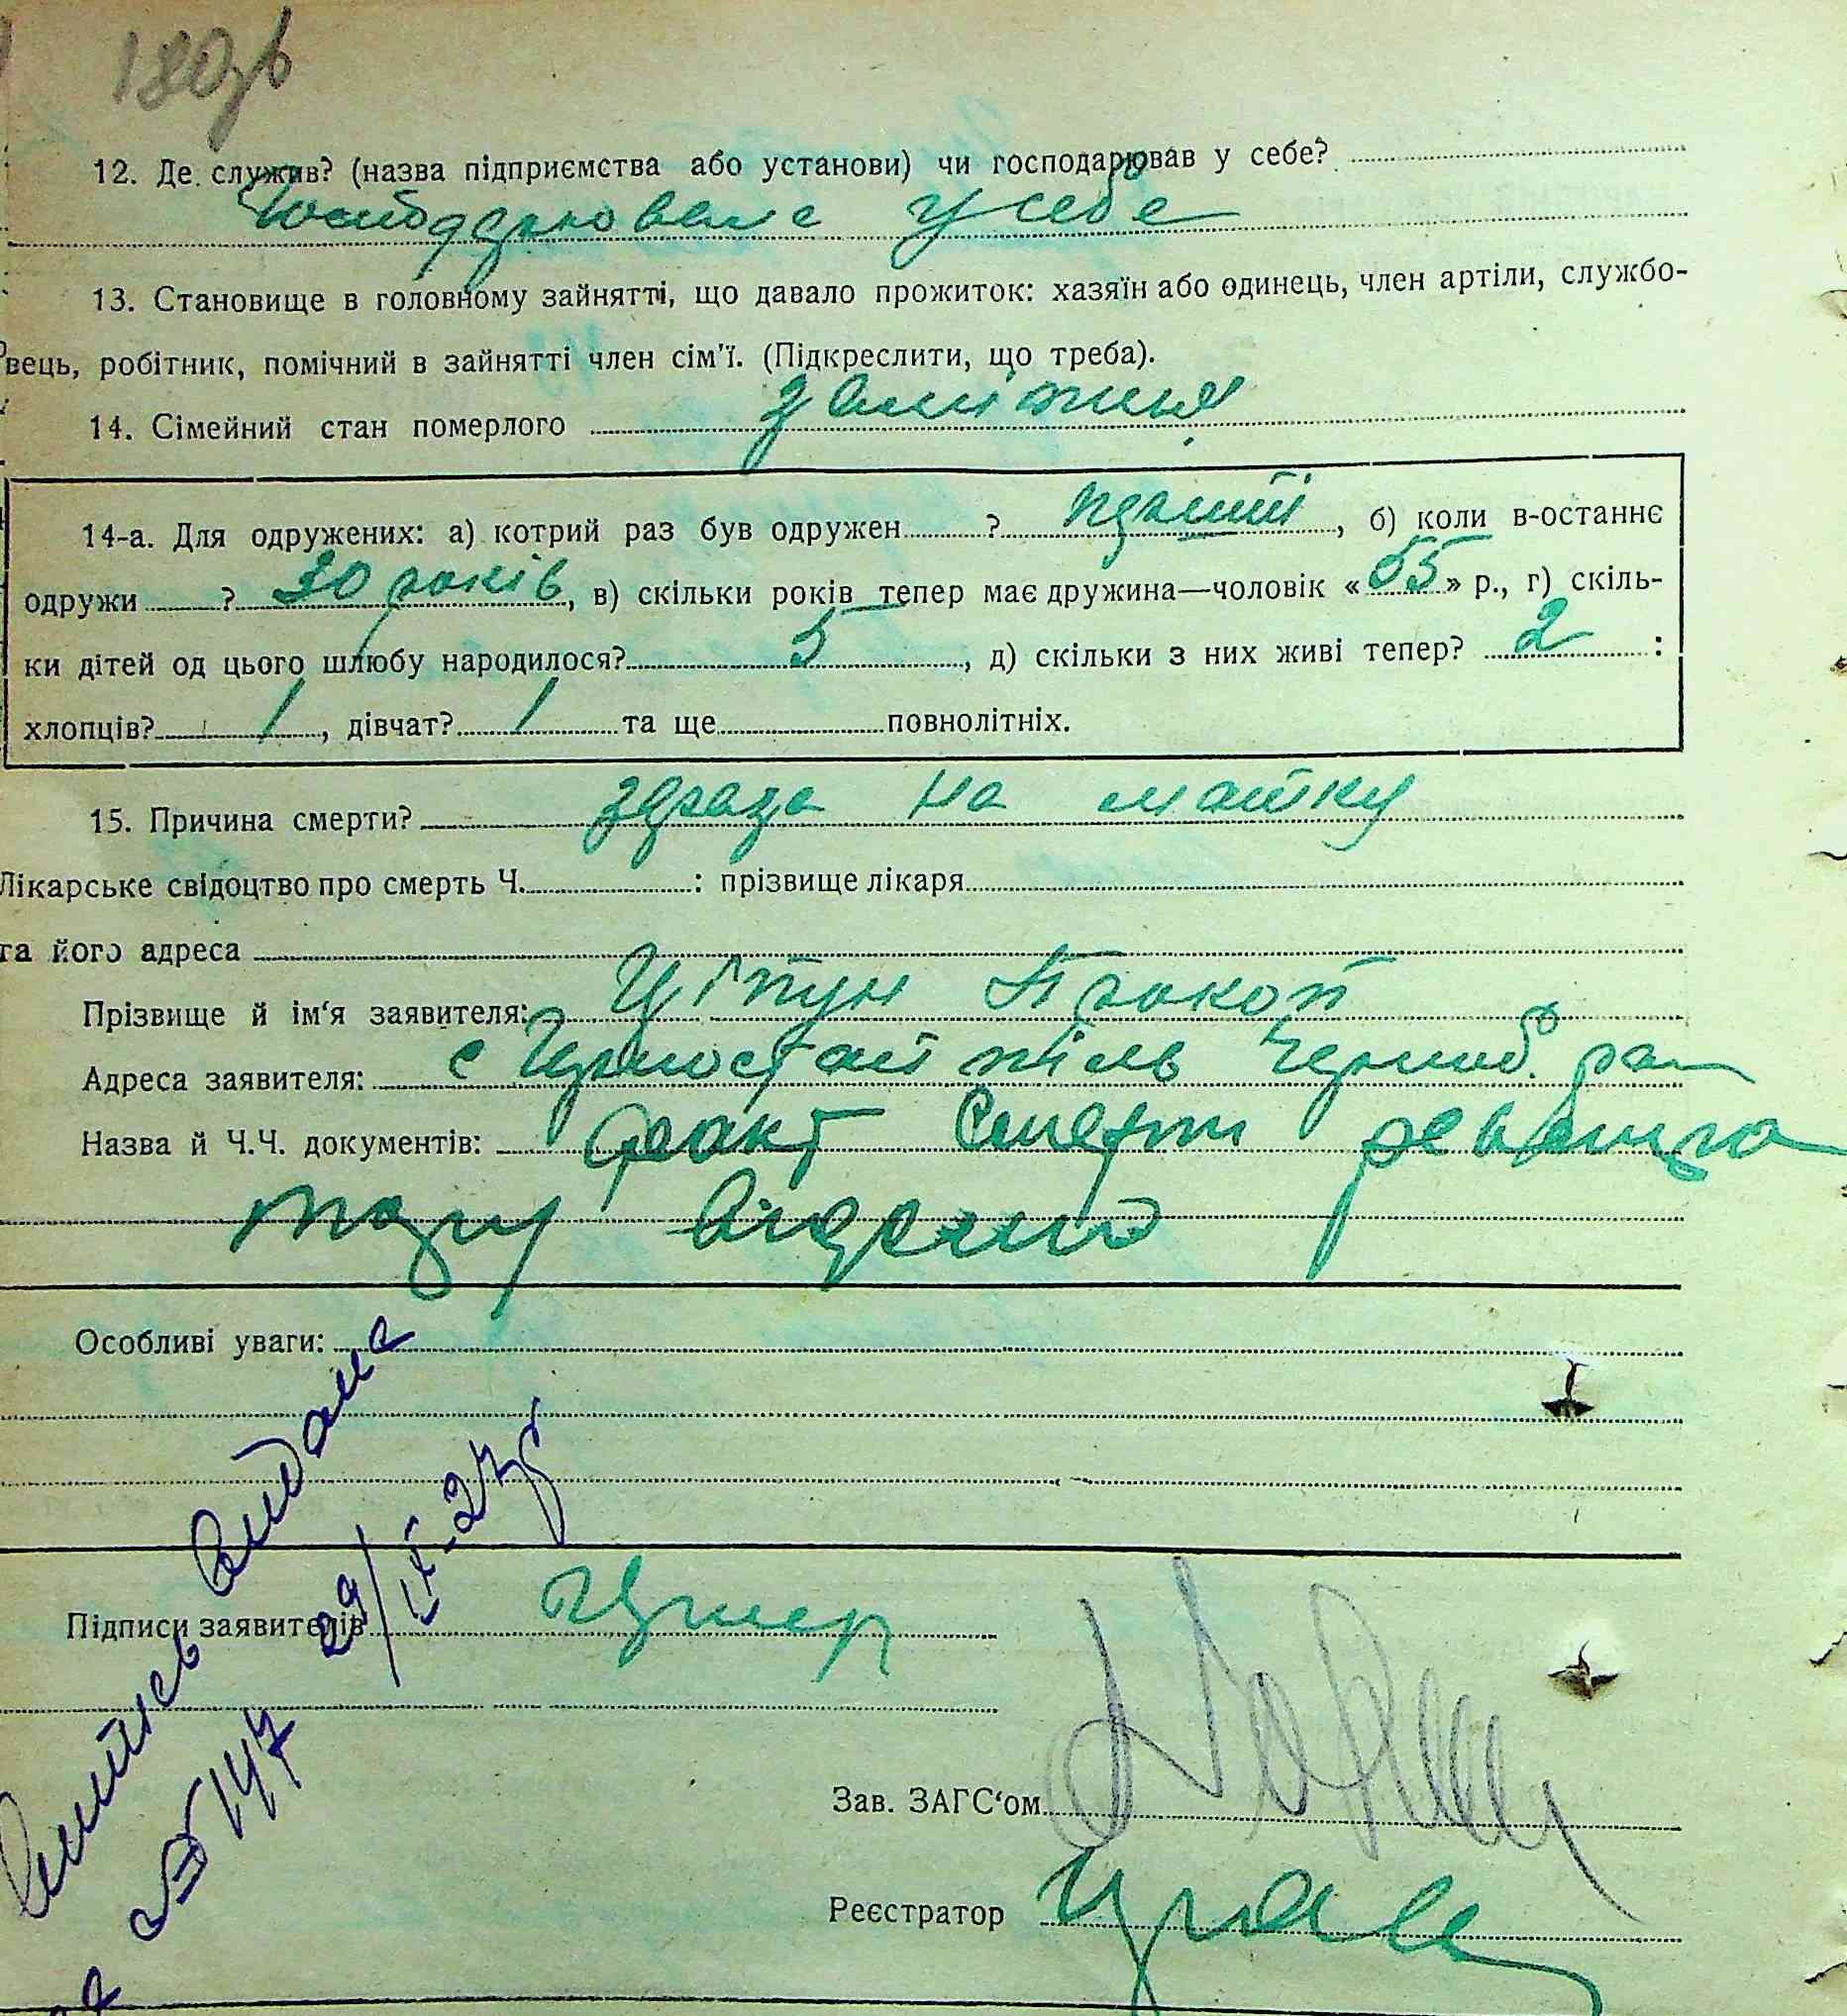 180зв
12. Де служив? (назва підприємства або установи) чи господарював у себе?
Господарювала у себе
13. Становище в головному зайнятті, що давало прожиток: хазяїн або одинець, член артіли, службо-
вець, робітник, помічний в зайнятті член сім'ї. (Підкреслити, що треба).
14. Сімейний стан померлого заміжня
14-а. Для одружених: а) котрий раз був одружен ? перший, б) коли в-останнє
одружи ? 30 років, в) скільки років тепер має дружина—чоловік «55» р., г) скіль-
ки дітей од цього шлюбу народилося? 5, д) скільки з них живі тепер? 2 :
хлопців? 1, дівчат? 1 та ще повнолітніх.
15. Причина смерти? зараза на матку
Лікарське свідоцтво про смерть Ч. : прізвище лікаря
та його адреса
Прізвище й ім'я заявителя: Ціпун Прокоп
Адреса заявителя: с Горностайпіль Чорноб. рай
Назва й Ч.Ч. документів: факт смерти
Особливі уваги:
видана
29/IX-27р
Підписи заявителів
№ 147
Зав. ЗАГС'ом
Реєстратор